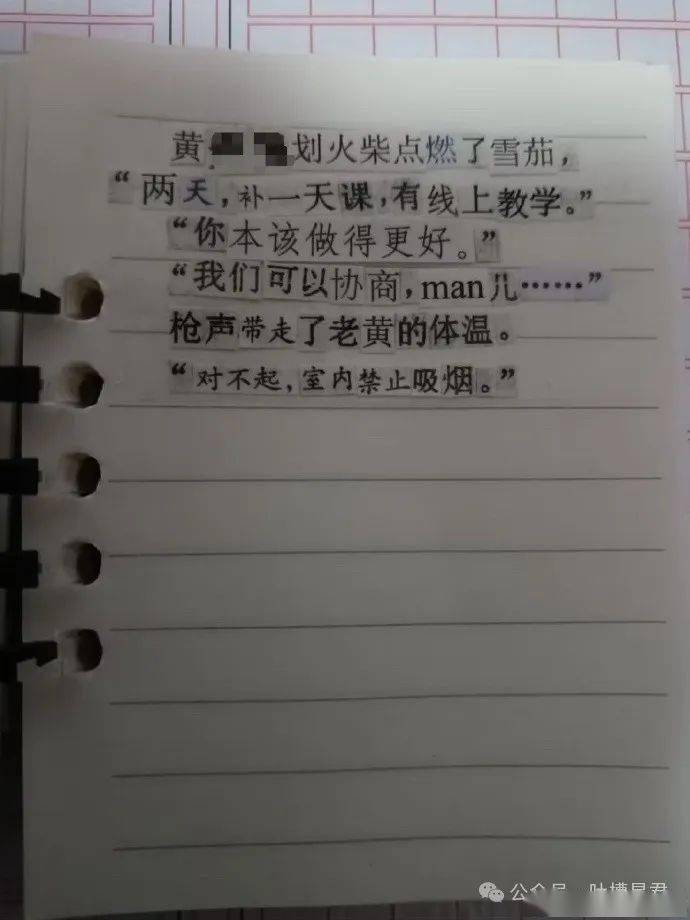 黄 划火柴点燃了雪茄，
“两天，补一天课，有线上教学。”
“你本该做得更好。”
“我们可以协商，man儿……”
枪声带走了老黄的体温。
“对不起，室内禁止吸烟。”
公众号 吐槽星君